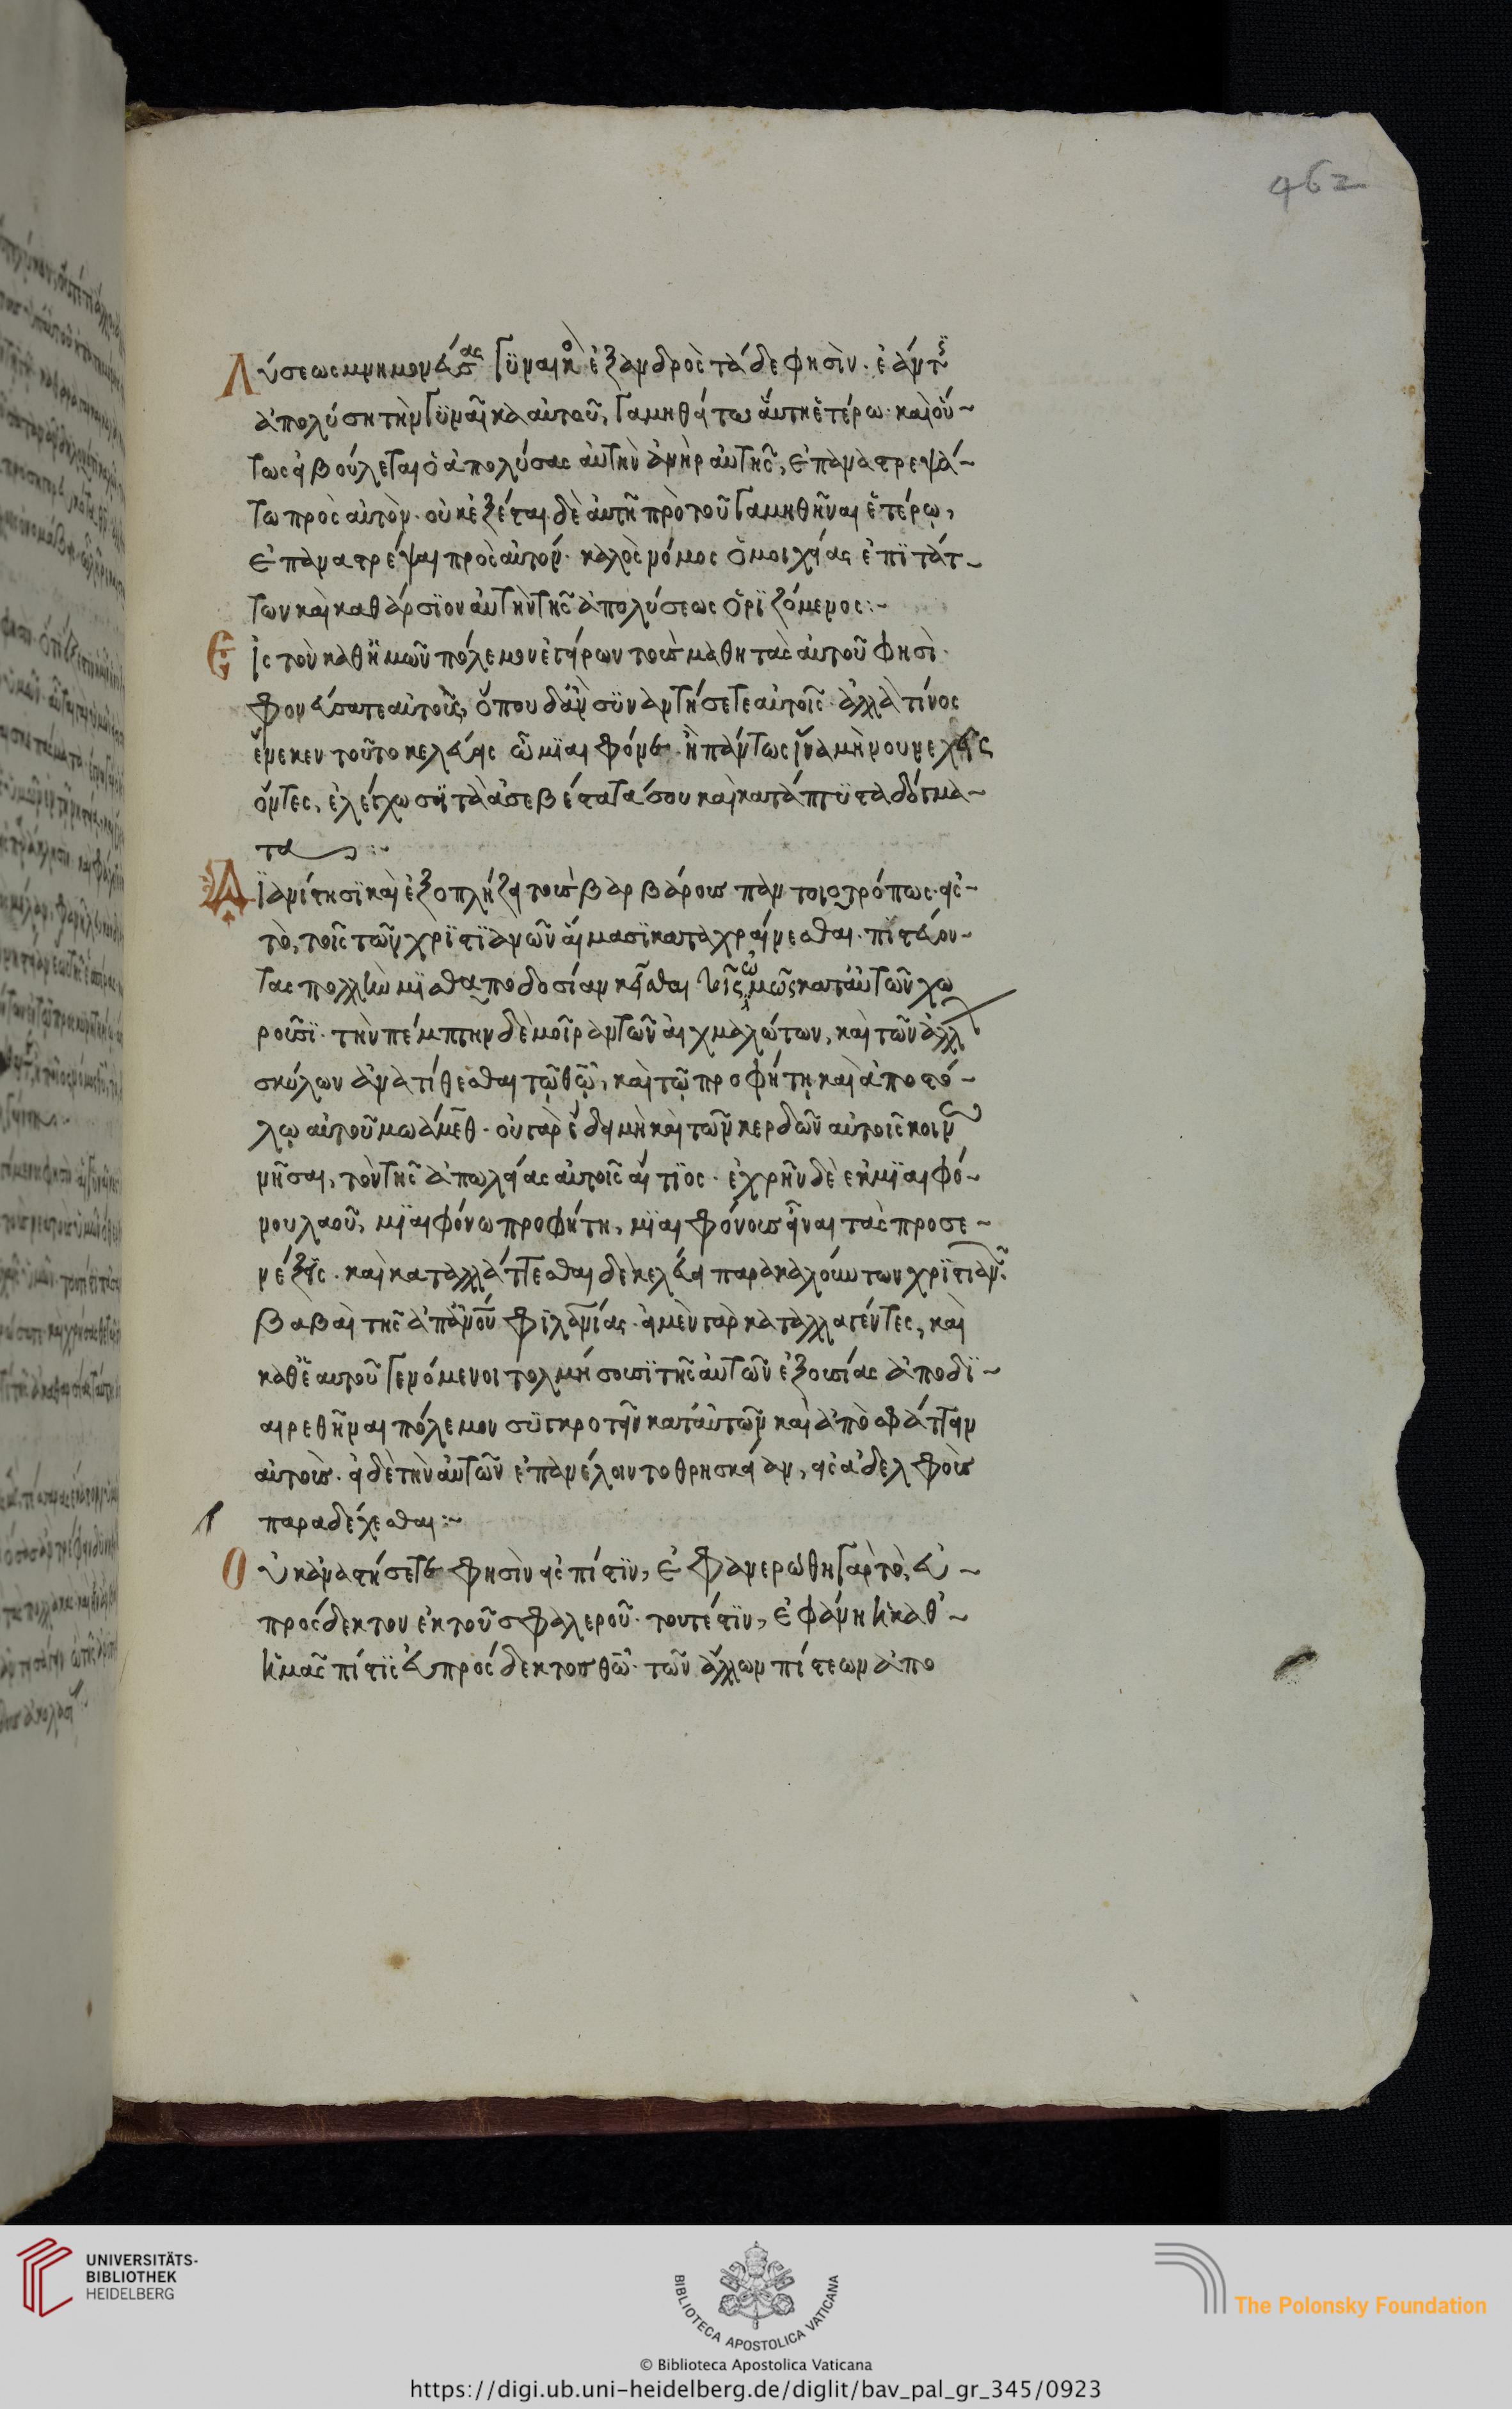 462
Λύσεως μνημονεύσας γυναικὸς ἐξ ἀνδρὸς τάδε φησὶν· ἐάν τις
ἀπολύση τὴν γυναῖκα αὐτοῦ, γαμηθήτω αὕτη ἑτέρω· καὶ οὕ-
τως εἰ βούλεται ὁ ἀπολύσας αὐτὴν ἀνὴρ αὐτῆς, ἐπαναστρεψά-
τω πρὸς αὐτὸν· οὐκ ἔξεσται δὲ αὐτῆ πρὸ τοῦ γαμηθῆναι ἑτέρῳ,
ἐπαναστρέψαι πρὸς αὐτόν· καλὸς νόμος ὁ μοιχείας ἐπιτάτ-
των καὶ καθάρσιον αὐτὴν τῆς ἀπολύσεως ὁριζόμενος:-
Εἰς τὸν καθ' ἡμῶν πόλεμον ἐγείρων τοὺς μαθητὰς αὐτοῦ φησὶ·
φονεύσατε αὐτοὺς, ὅπου δἂν συναντήσετε αὐτοῖς· ἀλλὰ τίνος
ἕνεκεν τοῦτο κελεύεις ὦ μιαιφόνε· ἢ πάντως ἵνα μὴ νουνεχεῖς
ὄντες, ἐλέγχωσι τὰ ἀσεβέστατά σου καὶ κατάπτυστα δόγμα-
τα:-
Διανίστησι καὶ ἐξοπλίζει τοὺς βαρβάρους παντοιοτρόπως· εἰς
τὸ, τοῖς τῶν χριστιανῶν αἵμασι καταχραίνεσθαι· πιστεύον-
τας πολλὴν μισθαποδοσίαν κεῖσθαι τοῖς ὠμῶς κατ' αὐτῶν χω
ροῦσι· τὴν πέμπτην δὲ μοῖραν τῶν αἰχμαλώτων, καὶ τῶν ἄλλων
σκύλων ἀνατίθεσθαι τῷ θῷ, καὶ τῷ προφήτῃ καὶ ἀποστό-
λῳ αὐτοῦ μωάμεθ· οὐ γὰρ ἔδει μὴ καὶ τῶν κερδῶν αὐτοῖς κοινω
νῆσαι, τὸν τῆς ἀπωλείας αὐτοῖς αἴτιος· ἐχρῆν δὲ ἐκ μιαιφό-
νου λαοῦ, μιαιφόνω προφήτη, μιαιφόνους εἶναι τὰς προσε-
νέξεις· καὶ καταλλάττεσθαι δὲ κελεύει παρακαλούντων χριστιανῶν·
βαβαὶ τῆς ἀπανου φιλανίας· εἰ μὲν γὰρ καταλλαγέντες, καὶ
καθ' ἑαυτοῦ γενόμενοι τολμήσουσι τῆς αὐτῶν ἐξουσίας ἀποδι-
αιρεθῆναι πόλεμον συγκροτεῖν κατ' αὐτῶν καὶ ἀποσφάττειν
αὐτοὺς· εἰ δὲ τὴν αὐτῶν ἐπανέλοιντο θρησκείαν, εἰς ἀδελφοὺς
παραδέχεσθαι:-
Οὐκ ἀναστήσετε φησὶν εἰς πίστιν, ἐφανερώθη γὰρ τὸ, εὐ-
πρόσδεκτον ἐκ τοῦ σφαλεροῦ· τουτέστιν, ἐφάνη ἡ καθ'-
ἡμᾶς πίστις εὐπρόσδεκτος θῶ· τῶν ἄλλων πίστεων ἀπο
UNIVERSITÄTS-
BIBLIOTHEK
HEIDELBERG
BIBLIOTECA APOSTOLICA VATICANA
The Polonsky Foundation
© Biblioteca Apostolica Vaticana
https://digi.ub.uni-heidelberg.de/diglit/bav_pal_gr_345/0923